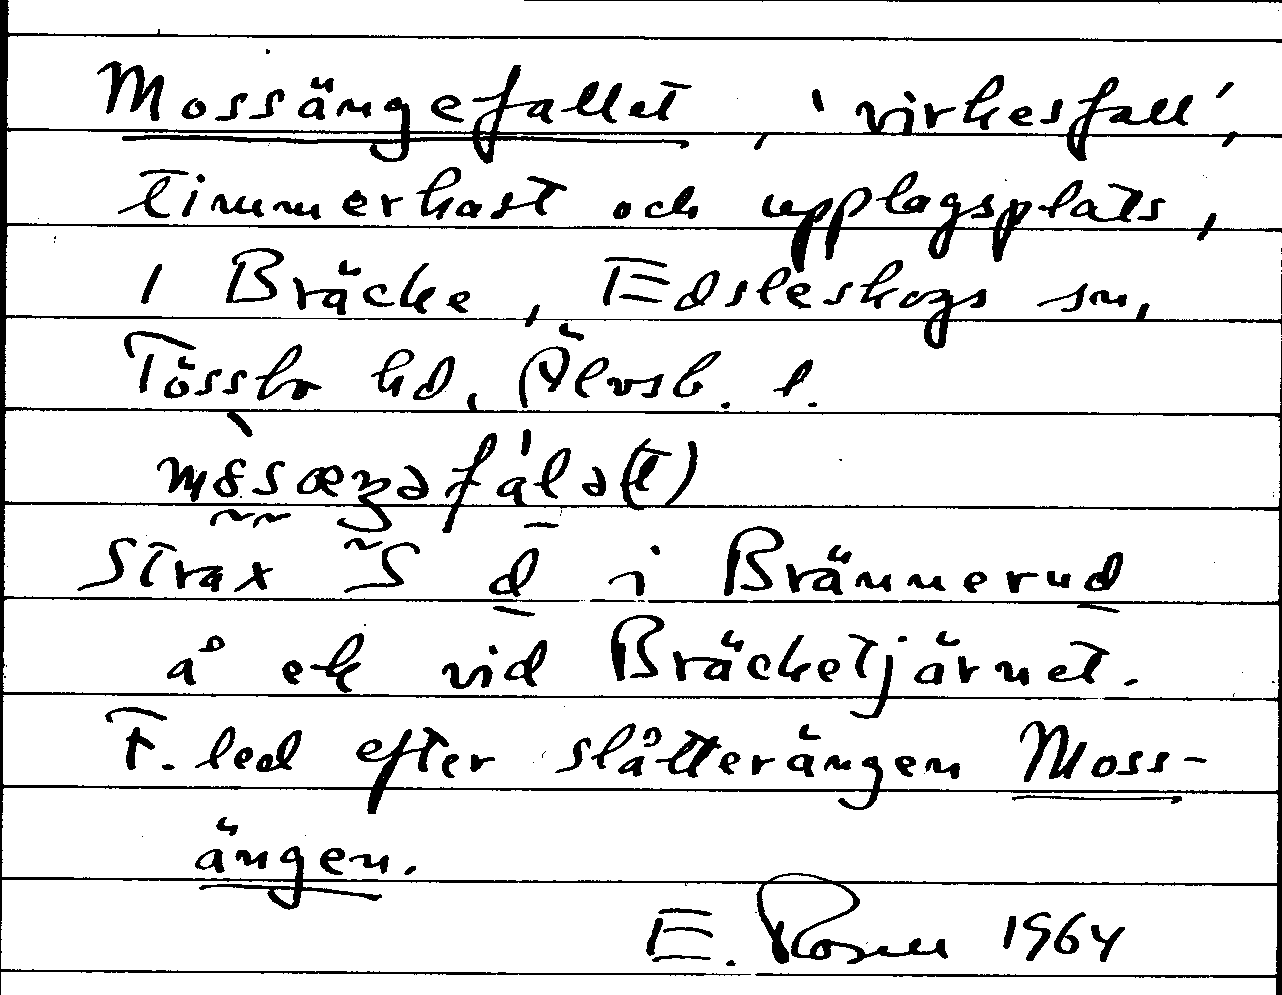 Mossängefallet, 'virkesfall',
timmerkast och upplagsplats,
i Bräcke, Edsleskogs sn,
Tössbo hd, Älvsb. l.
Strax S d i Brännerud
å ek vid Bräcketjärnet.
F. led efter slåtterängen Moss-
ängen.
E. Rosell 1964